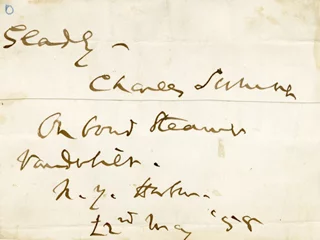 Gladly -
Charles Sumner
On board Steamer
Vanderbilt.
N. Y. Harbor.
22nd May '58